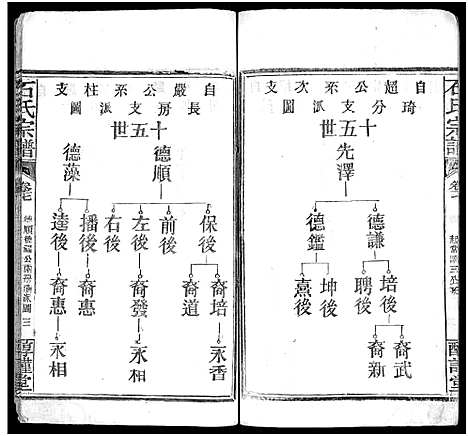 石氏宗譜
自超公系次支
琦分支派圖
十五世
先澤
德謙
德鑑
培後
聘後
坤後
熹後
裔武
裔新
自嚴公系柱支
長房支派圖
十五世
德順
德藻
保後
前後
左後
右後
播後
逵後
裔培
裔道
裔發
裔惠
裔惠
永香
永相
永相
石氏宗譜
卷七